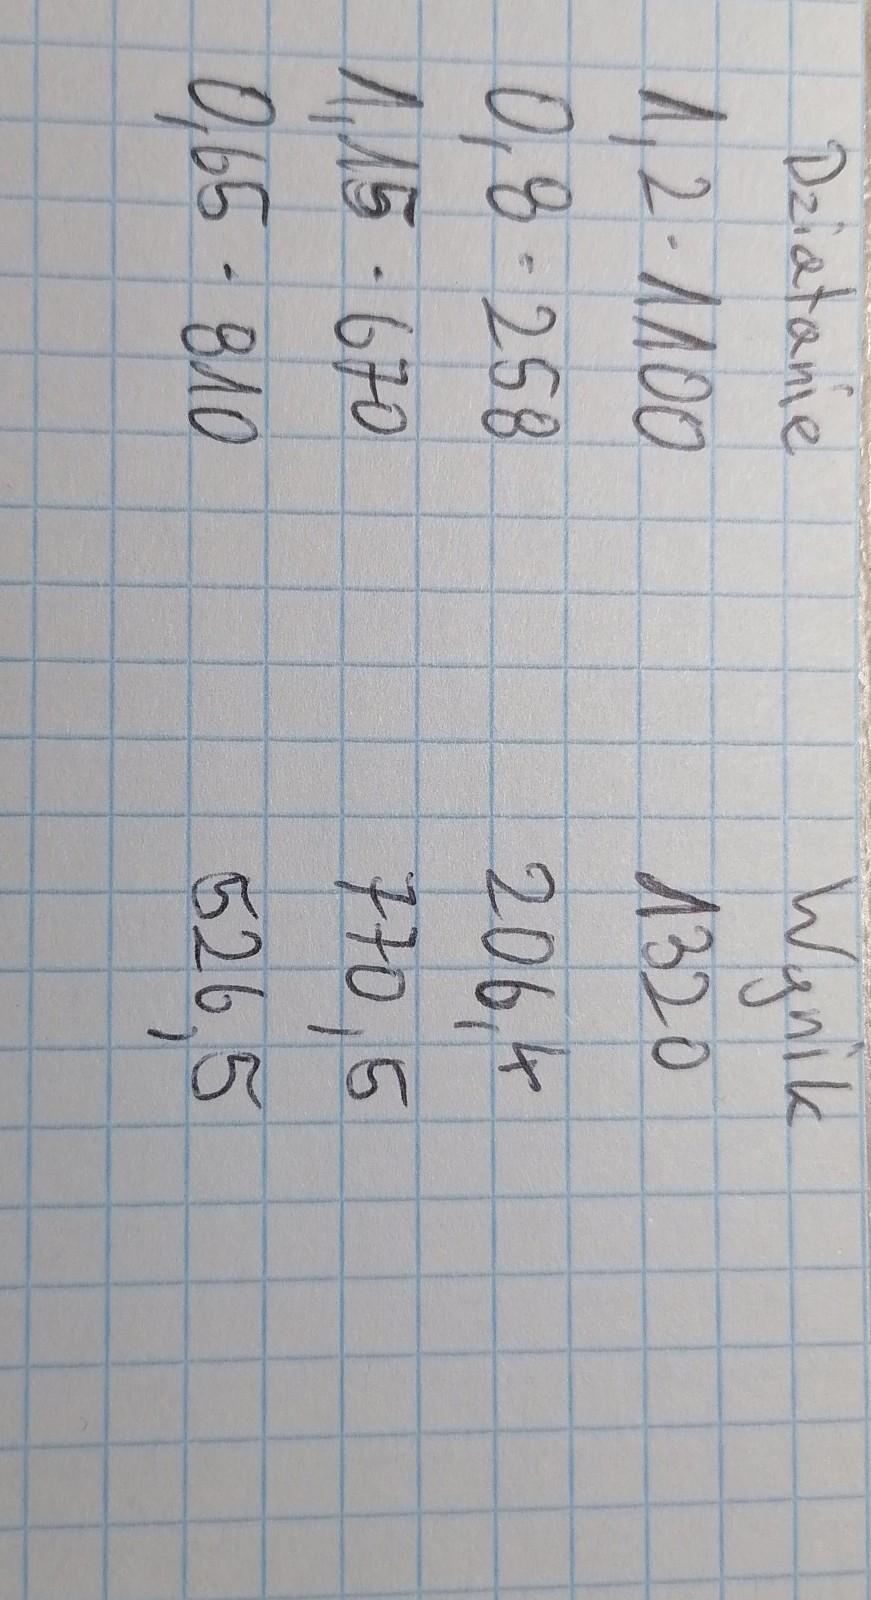 Działanie Wynik
1,2 · 1100 1320
0,8 · 258 206,4
1,15 · 670 770,5
0,65 · 810 526,5